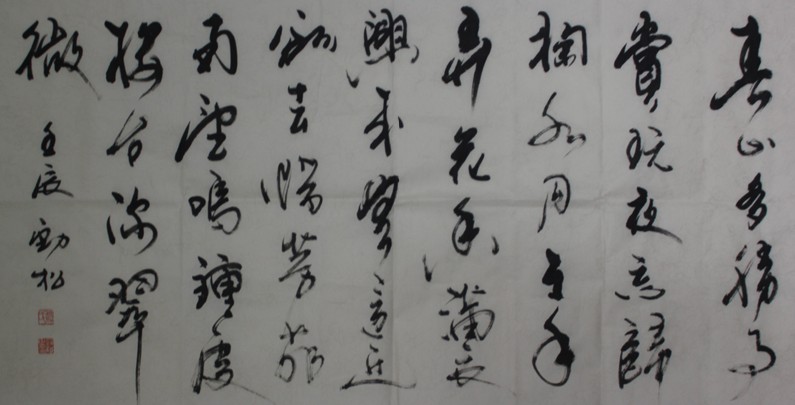 春山多勝事
賞玩夜忘歸
掬水月在手
弄花香滿衣
興來無遠近
欲去惜芳菲
南望鳴鐘處
樓台深翠
微 壬辰 勁松